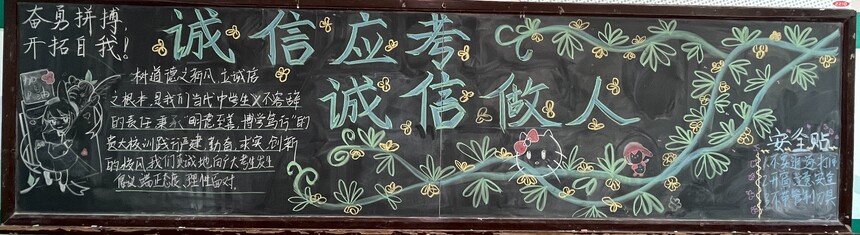 奋勇拼搏,
开拓自我!
诚信应考
诚信做人
树道德之新风,立诚信
之根本,是我们当代中学生义不容辞
的责任,秉承"明德至善,博学笃行"的
贵大校训践行严谨、勤奋、求实、创新
的校风,我们真诚地向广大考生发出
倡议端正态度、理性面对
安全贴